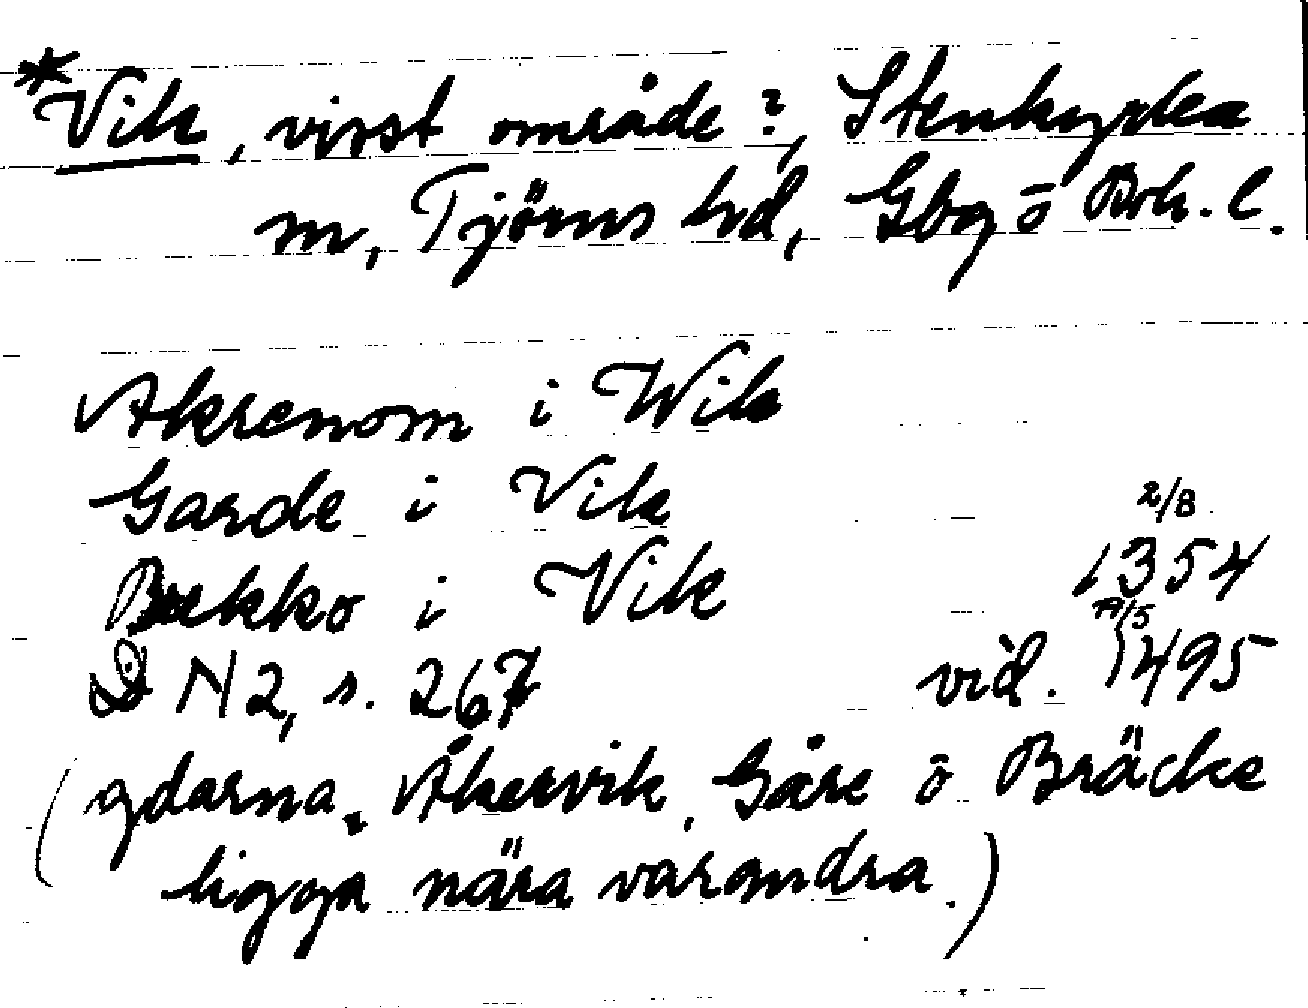 *Vik, visst område?, Stenkyrka
sn, Tjörns hd, Gbg o Boh. l.
Akrenom i Wik
Garde i Vik 2/8
Bækko i Vik 1354
DN 2, s. 267 vid. 1495
(gdarna Åkervik, Gåre o Bräcke
ligga nära varandra.)